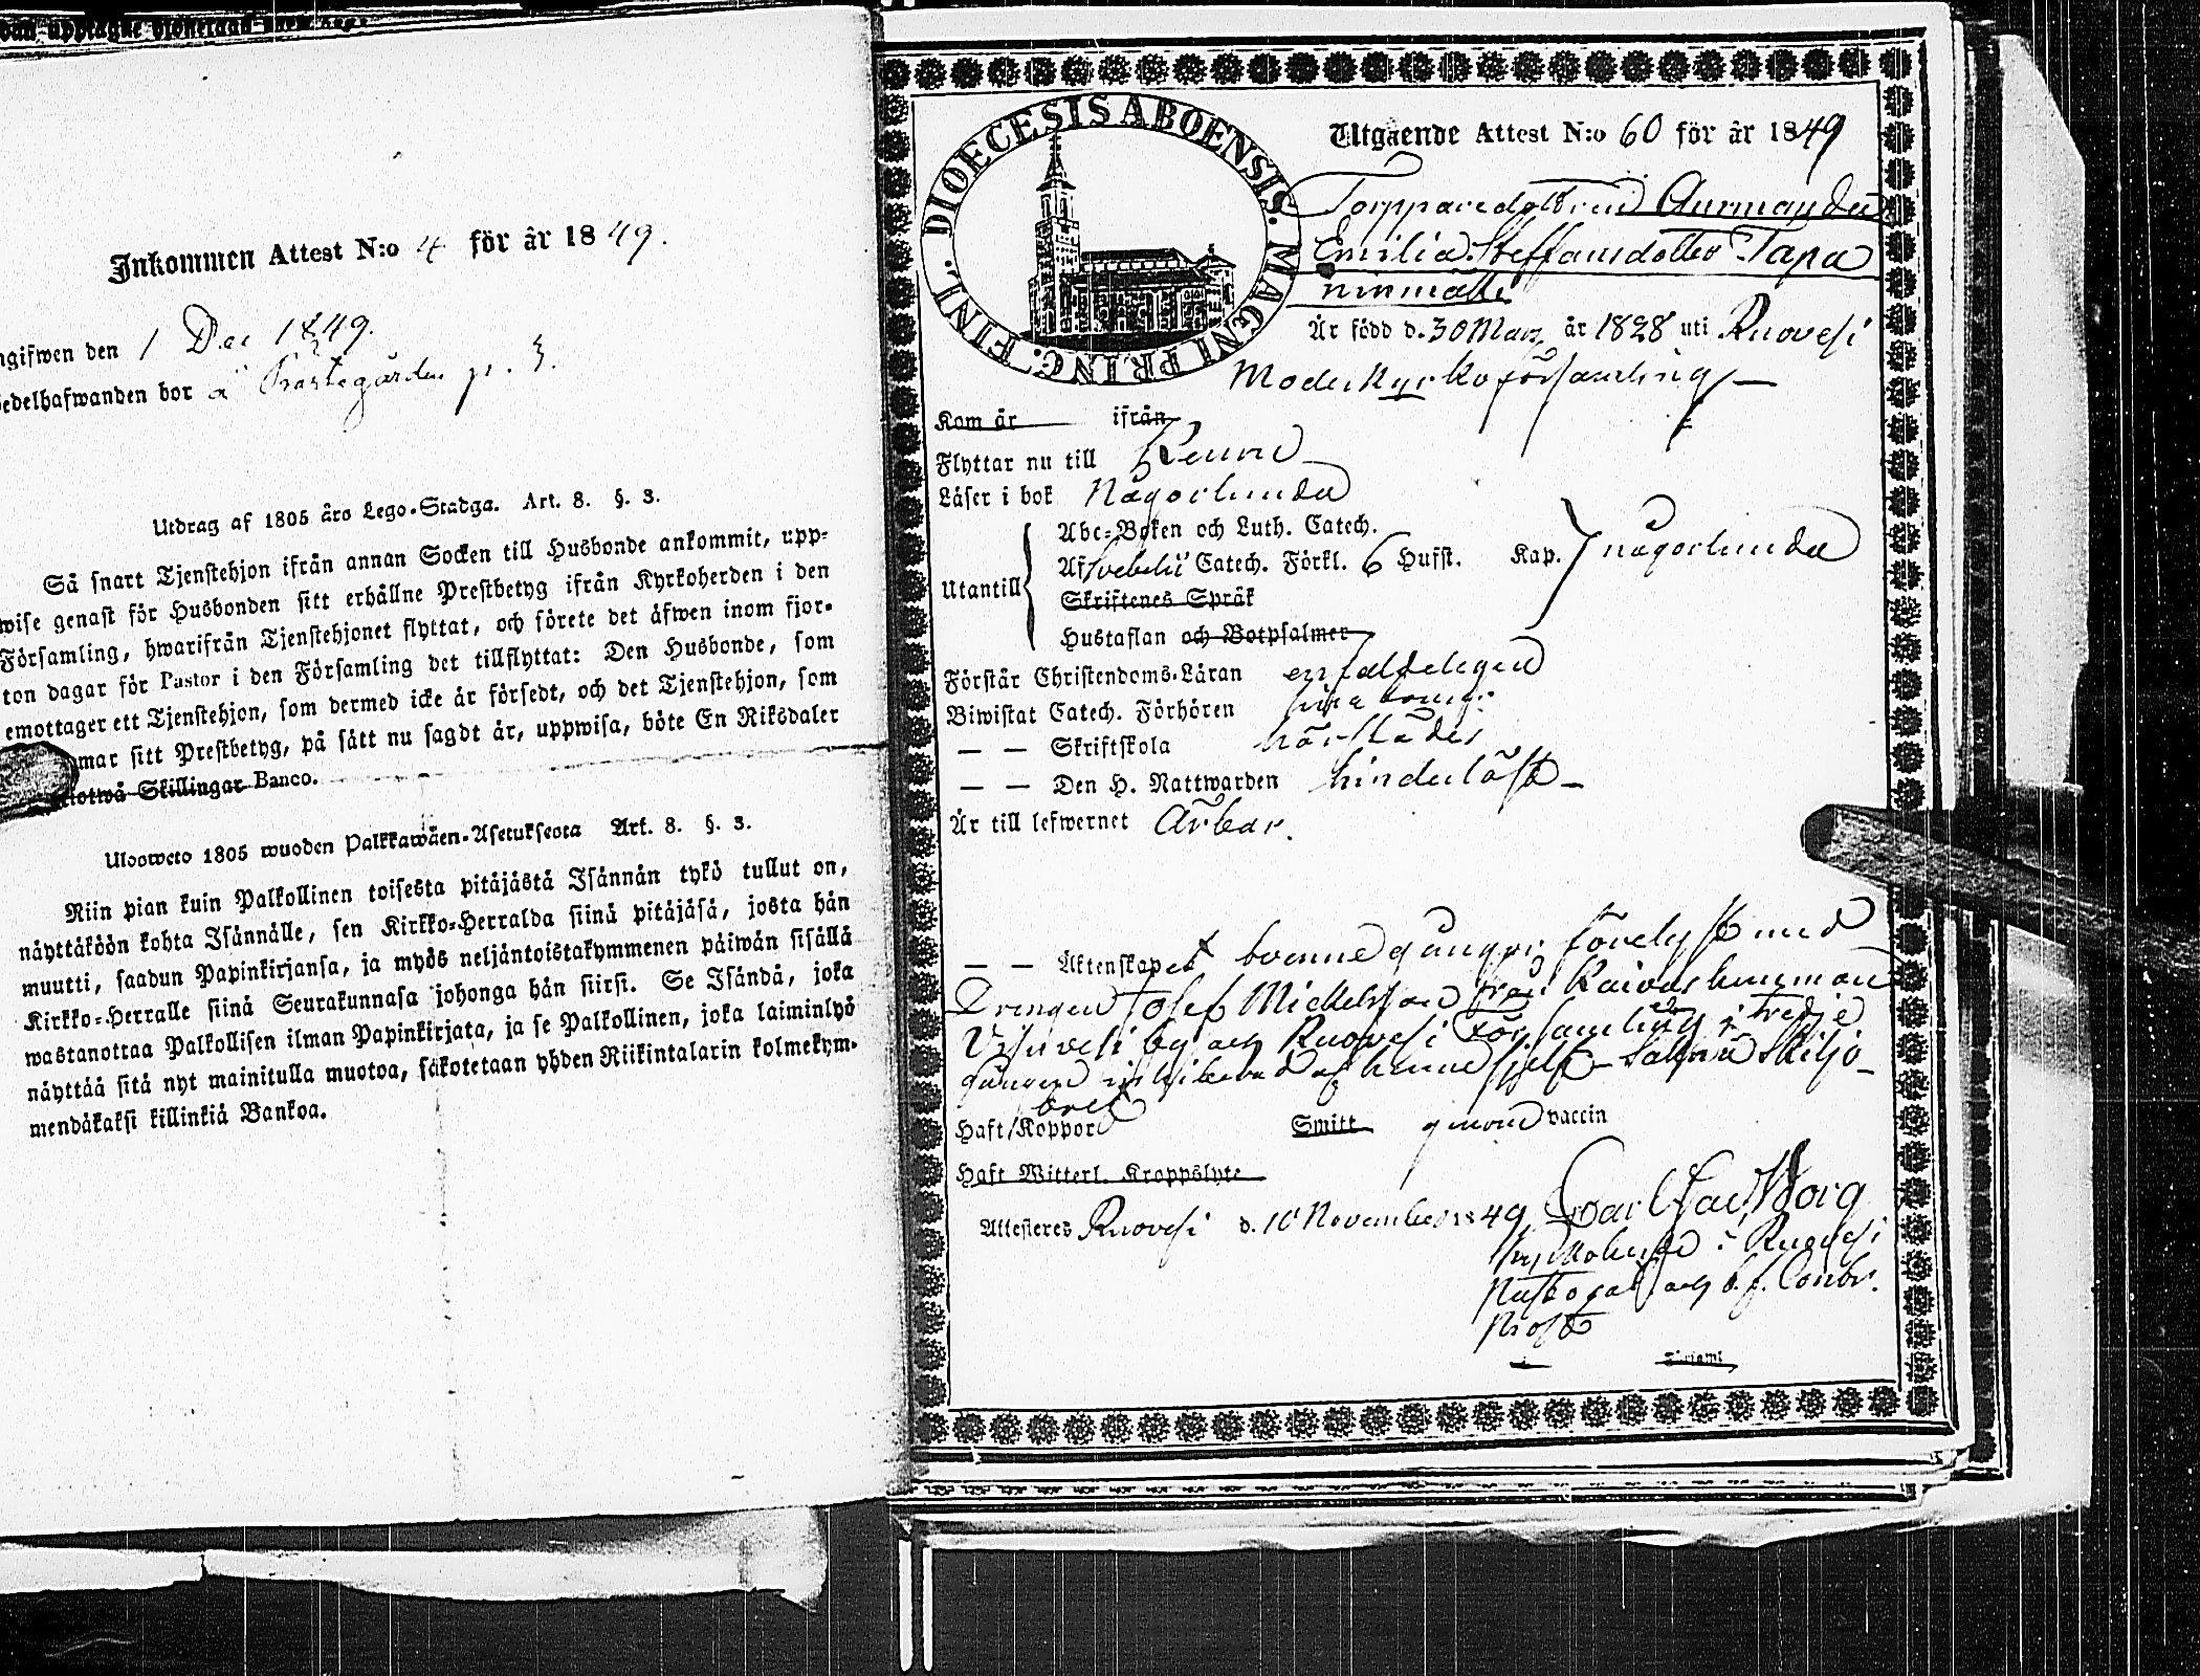 Inkommen Attest N:o 4 för år 1849.
ngifwen den 1 Dec 1849.
edelhafwanden bor å Prästegården p. 3.
Utdrag af 1805 års Lego-Stadga. Art. 8. §. 3.
Så snart Tjenstehjon ifrån annan Socken till Husbonde ankommit, upp-
wise genast för Husbonden sitt erhållne Prestbetyg ifrån Kyrkoherden i den
Församling, hwarifrån Tjenstehjonet flyttat, och förete det äfwen inom fjor-
ton dagar för Pastor i den Församling det tillflyttat: Den Husbonde, som
emottager ett Tjenstehjon, som dermed icke är försedt, och det Tjenstehjon, som
mar sitt Prestbetyg, på sätt nu sagdt är, uppwisa, böte En Riksdaler
iotwå Skillingar Banco.
Ulosweto 1805 wuoden Palkkawäen-Asetuksesta Art. 8. §. 3.
Niin pian kuin Palkollinen toisesta pitäjästä Isännän tykö tullut on,
näyttäköön kohta Isännälle, sen Kirkko-Herralda siinä pitäjäsä, josta hän
muutti, saadun Papinkirjansa, ja myös neljäntoistakymmenen päiwän sisällä
Kirkko-Herralle siinä Seurakunnasa johonga hän siirsi. Se Isändä, joka
wastanottaa Palkollisen ilman Papinkirjata, ja se Palkollinen, joka laiminlyö
näyttää sitä nyt mainitulla muotoa, sakotetaan yhden Riikintalarin kolmekym-
mendäkaksi killinkiä Bankoa.
DIOECESIS ABOENSIS. MAGNI PRINC. FINL.
Utgående Attest N:o 60 för år 1849
Torpparedottren Annmanda
Emilia Steffansdotter Tapa
ninmäki
Är född d. 30 Mars år 1828 uti Ruovesi
Moderkyrkoförsamling
Kom år ifrån
Flyttar nu till Keuru
Läser i bok Någorlunda
Utantill
Abc-Boken och Luth. Catech.
Af Svebelii Catech. Förkl. 6 Hufst. Kap. någorlunda
Skriftenes Språk
Hustaflan och Botpsalmer
Förstår Christendoms-Läran enfaldeligen
Biwistat Catech. Förhören sina
— — Skriftskola härstädes
— — Den H. Nattwarden hinderlöst
Är till lefwernet Ärbar.
— — Äktenskapet tvenne gånger förelyst med
Drengen Josef Mickelsson från
Visuvesi by och Ruovesi Församling, tredje
gången af henne sjelf Saknar Skiljo-
bref
Haft Koppor Smitt genom vaccin
Haft Witterl. Kroppslyte
Attesteres Ruovesi d. 10 November 1849
Kyrkoherde i Ruovesi
Pastorat och
Prost